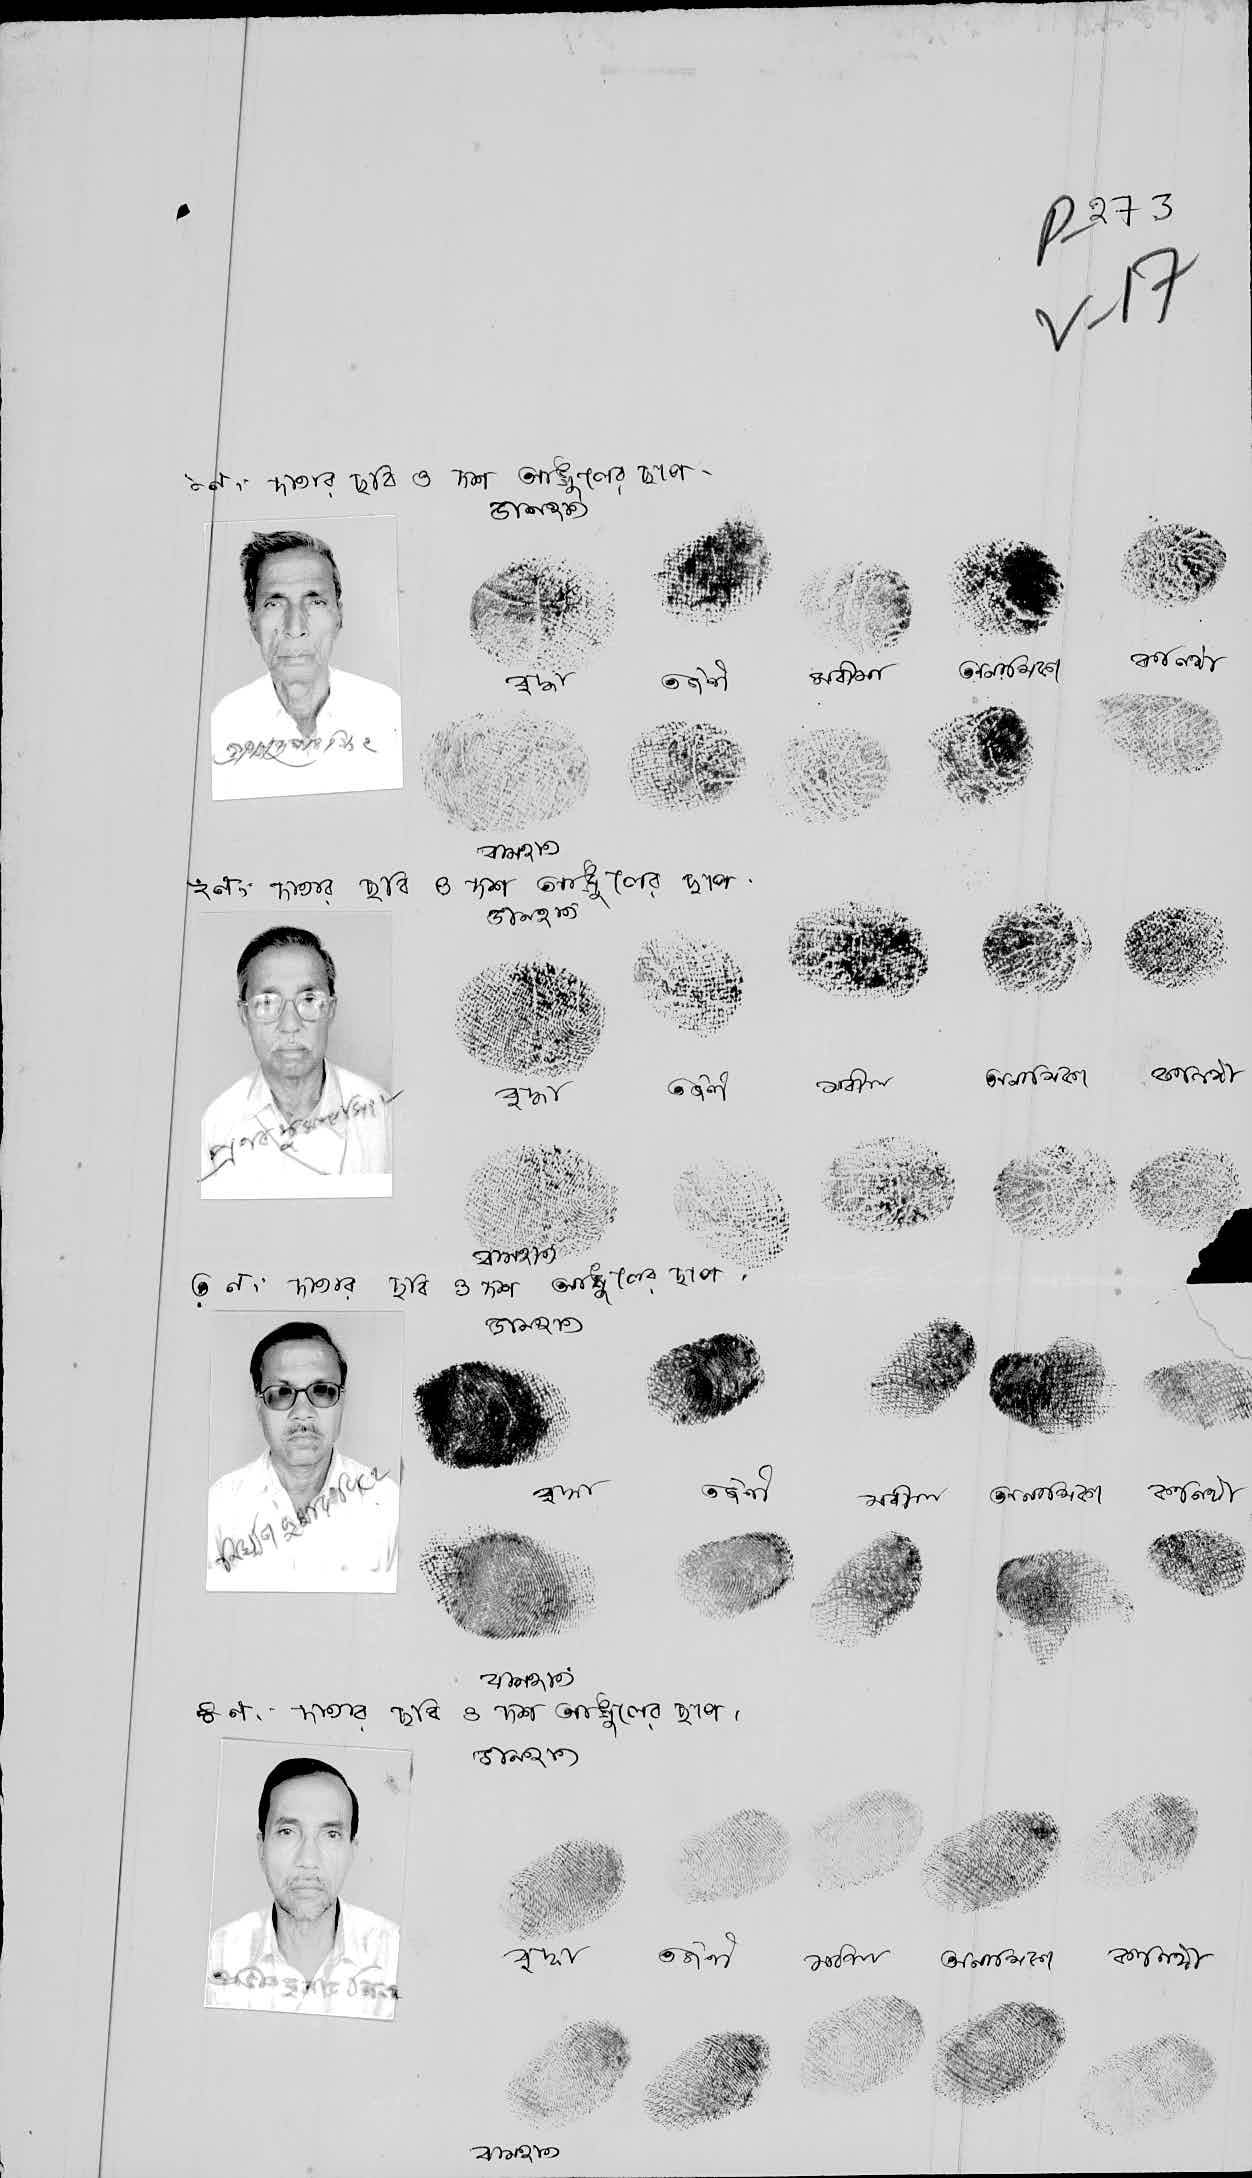 P-273
V-17
১নং দাতার ছবি ও দশ আঙ্গুলের ছাপ।
ডানহাত
বৃদ্ধা তর্জনী মধ্যমা অনামিকা কনিষ্ঠা
বামহাত
২নং দাতার ছবি ও দশ আঙ্গুলের ছাপ।
ডানহাত
প্রণব কুমার সিংহ
বৃদ্ধা তর্জনী মধ্যমা অনামিকা কনিষ্ঠা
বামহাত
৩নং দাতার ছবি ও দশ আঙ্গুলের ছাপ।
ডানহাত
কুমার সিংহ
বৃদ্ধা তর্জনী মধ্যমা অনামিকা কনিষ্ঠা
বামহাত
৪নং দাতার ছবি ও দশ আঙ্গুলের ছাপ।
ডানহাত
বৃদ্ধা তর্জনী মধ্যমা অনামিকা কনিষ্ঠা
কুমার সিংহ
বামহাত